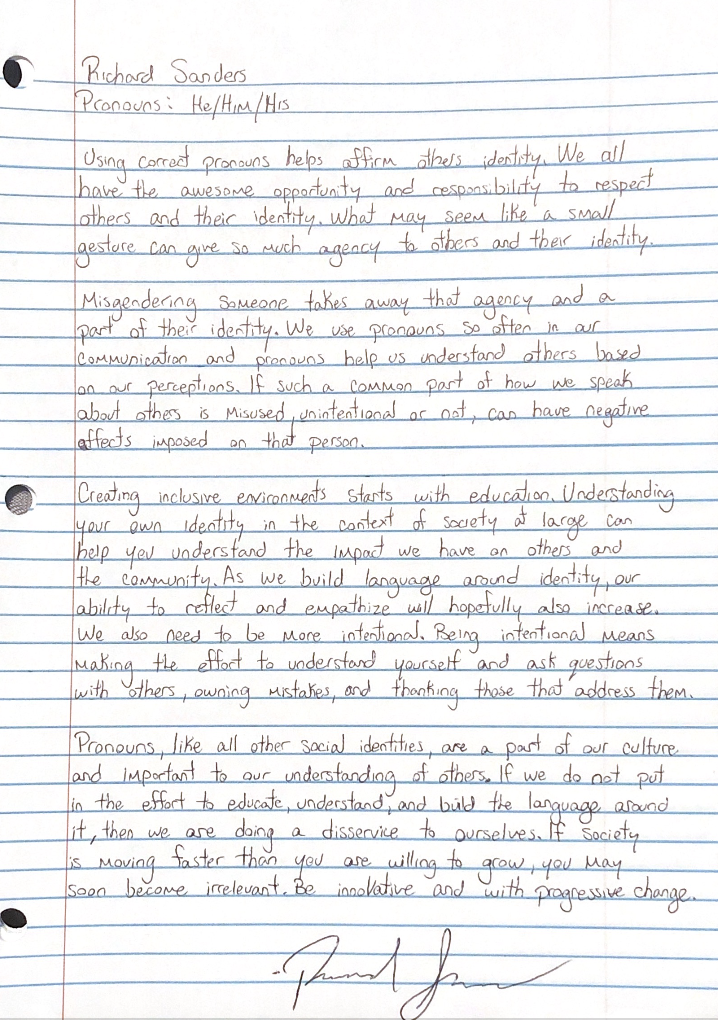 Richard Sanders
Pronouns: He/Him/His
Using correct pronouns helps affirm others identity. We all
have the awesome opportunity and responsibility to respect
others and their identity. What may seem like a small
gesture can give so much agency to others and their identity.
Misgendering someone takes away that agency and a
part of their identity. We use pronouns so often in our
communication and pronouns help us understand others based
on our perceptions. If such a common part of how we speak
about others is misused, unintentional or not, can have negative
effects imposed on that person.
Creating inclusive environments starts with education. Understanding
your own identity in the context of society at large can
help you understand the impact we have on others and
the community. As we build language around identity, our
ability to reflect and empathize will hopefully also increase.
We also need to be more intentional. Being intentional means
making the effort to understand yourself and ask questions
with others, owning mistakes, and thanking those that address them.
Pronouns, like all other social identities, are a part of our culture
and important to our understanding of others. If we do not put
in the effort to educate, understand, and build the language around
it, then we are doing a disservice to ourselves. If society
is moving faster than you are willing to grow, you may
soon become irrelevant. Be innovative and with progressive change.